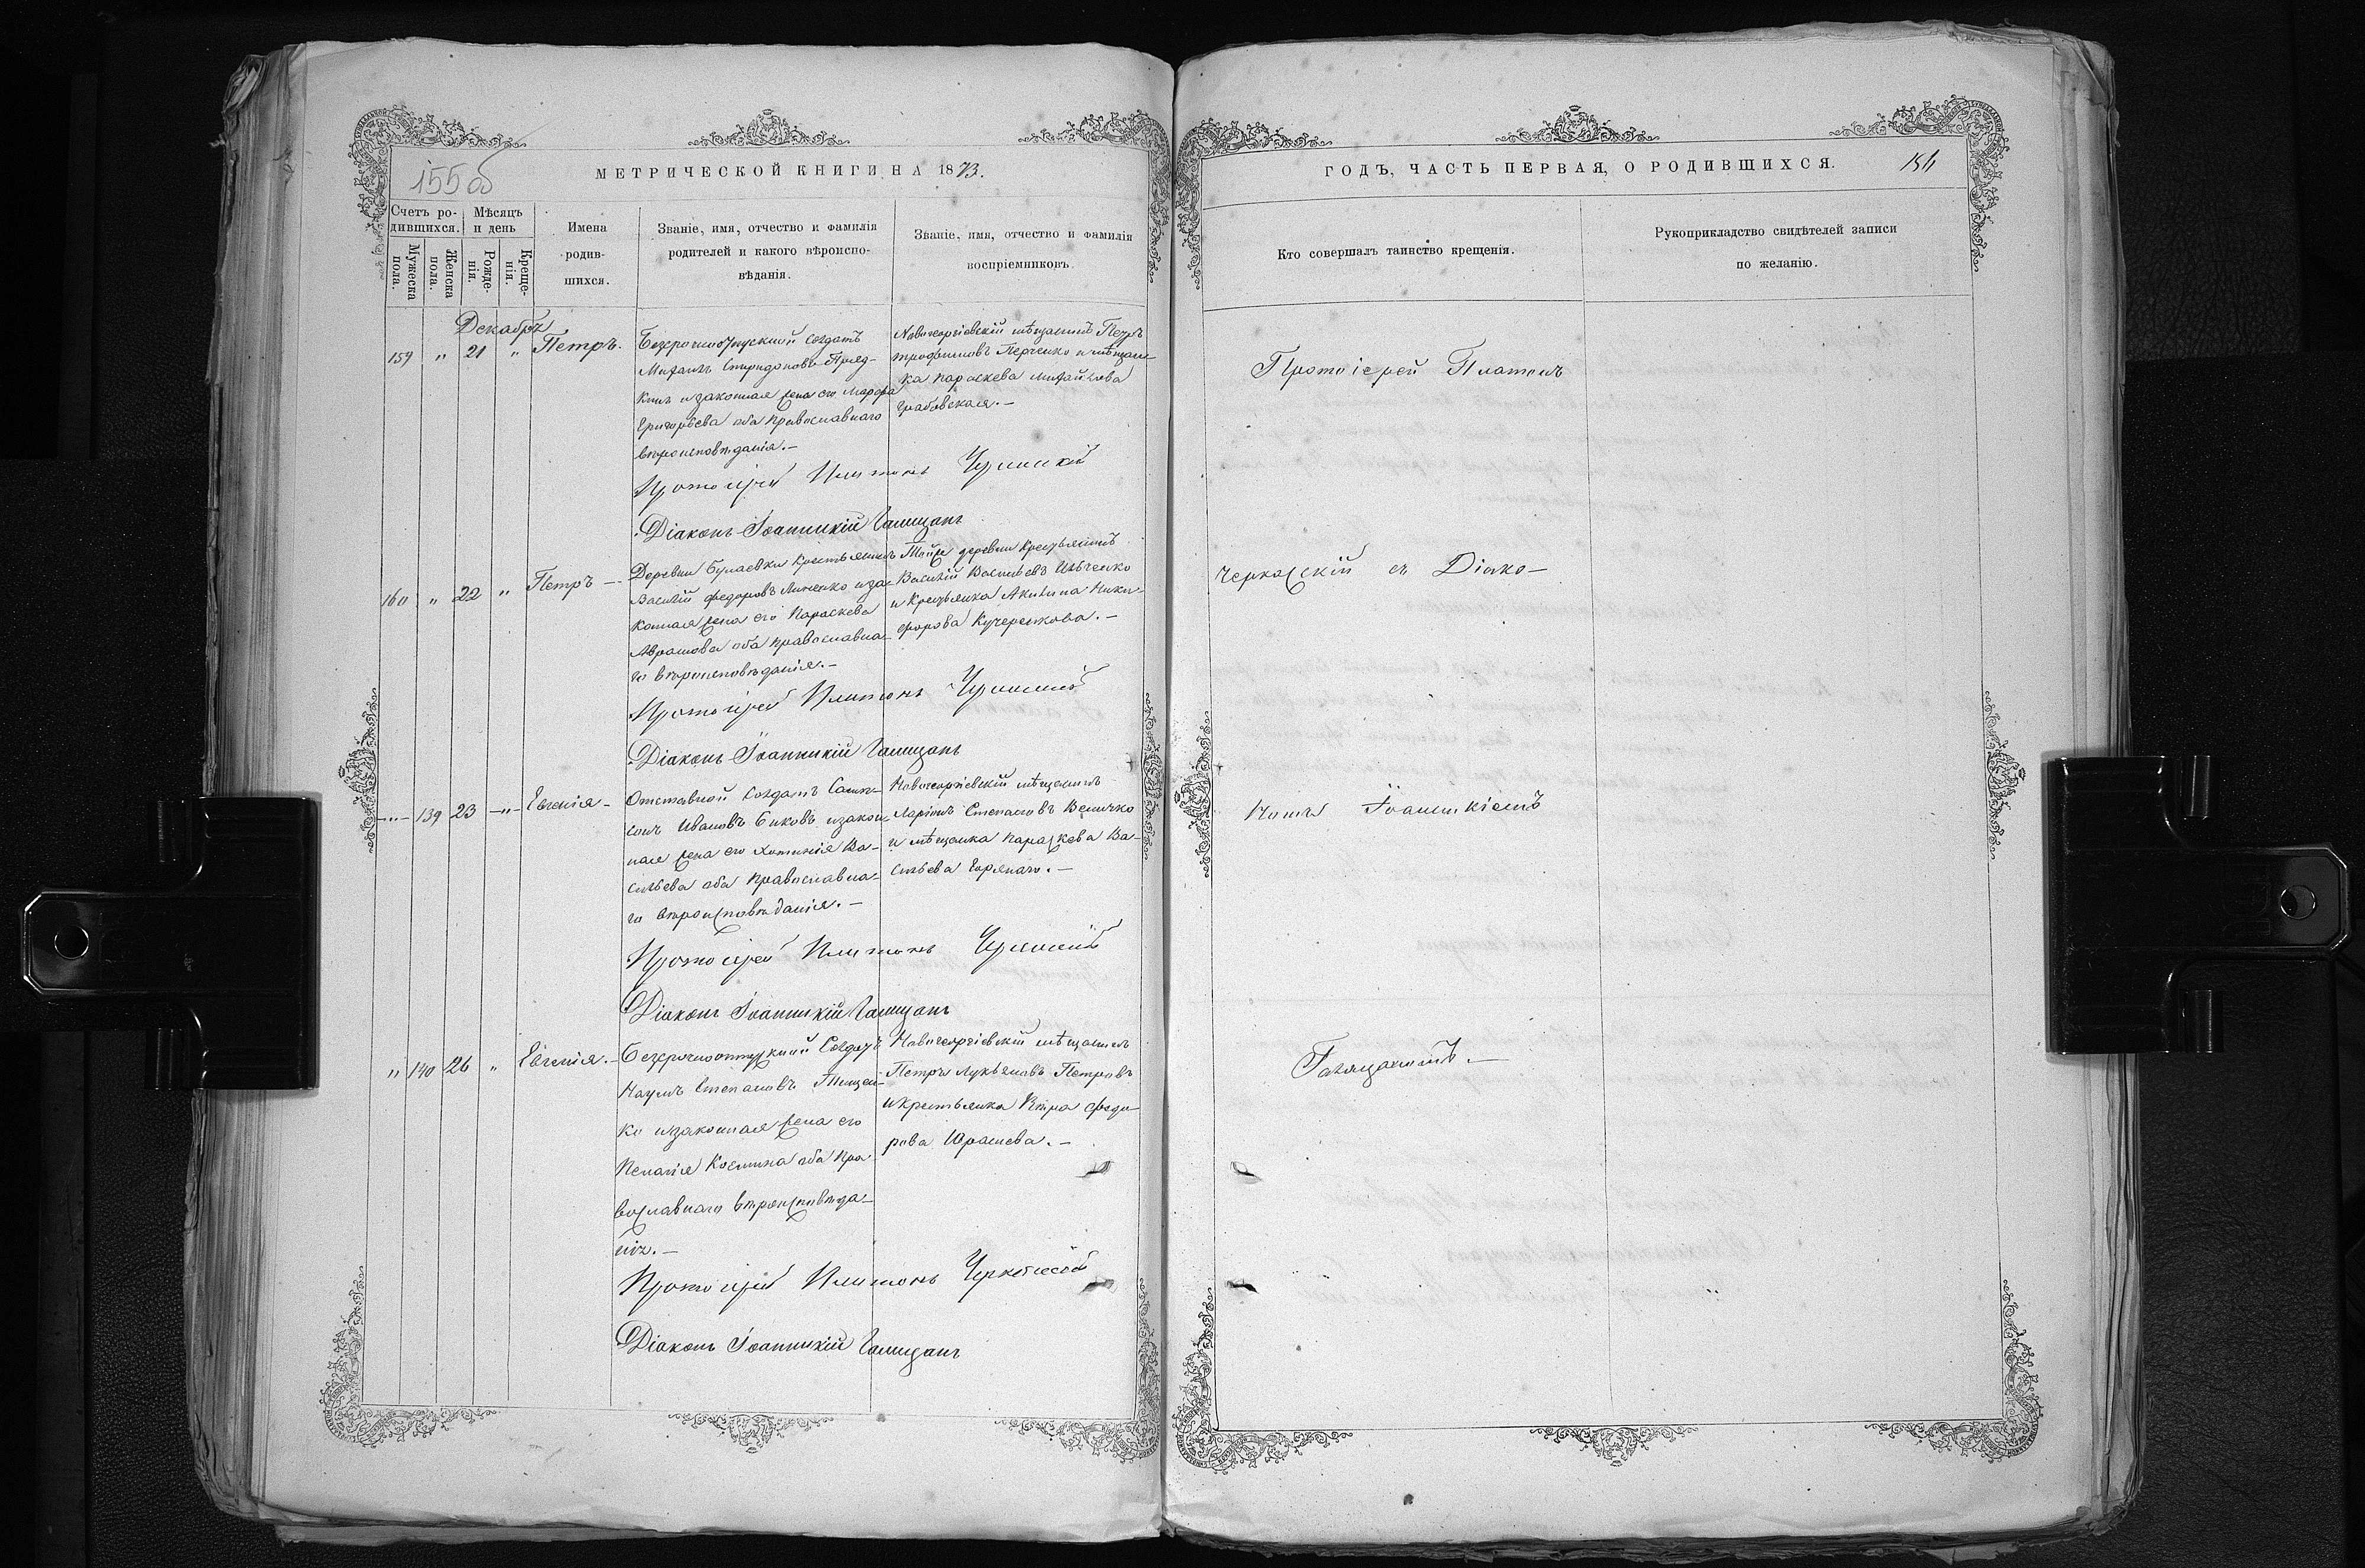 155об
МЕТРИЧЕСКОЙ КНИГИ НА 1873.
Счетъ ро-
дившихся.
Мужеска
пола.
Женска
пола.
Мѣсяцъ
и день
Рожде-
нія.
Креще-
нія.
Имена
родив-
шихся.
Званіе, имя, отчество и фамилія
родителей и какого вѣроиспо-
вѣданія.
Званіе, имя, отчество и фамилія
воспріемниковъ.
Декабрь
159 " 21 " Петръ.
Безсрочноотпускной солдатъ
Михаилъ Спиридоновъ
и законная жена его Марфа
Григорьева оба православнаго
вѣроисповѣданія.—
Новогеоргіевскій мѣщанинъ Петръ
Трофимовъ Перченко и мѣщан-
ка Параскева Михайлова
Грабовская.—
Протоіерей Платонъ Черкаскій
Діаконъ Іоанникій Галицанъ
160 " 22 " Петръ —
Деревни Крестьянинъ
Василій Федоровъ и за-
конная жена его Параскева
Аврамова оба православна-
го вѣроисповѣданія.—
Той же деревни Крестьянинъ
Василій Васильевъ Ильченко
и Крестьянка Акилина Ники-
форова Кучеренкова.—
Протоіерей Платонъ Черкаскій
Діаконъ Іоанникій Галицанъ
—"— 139 23 —"— Евгенія —
Отставной солдатъ Самп-
сонъ Ивановъ Биковъ и закон-
ная жена его Ва-
сильева оба православна-
го вѣроисповѣданія.—
Новогеоргіевскій мѣщанинъ
Ларіонъ Степановъ Величко
и мѣщанка Параскева Ва-
сильева
Протоіерей Платонъ Черкаскій
Діаконъ Іоанникій Галицанъ
" 140 26 " Евгенія.—
Безсрочноотпускный Солдатъ
Наумъ Степановъ Тищен-
ко и законная жена его
Пелагія Космина оба пра-
вославнаго вѣроисповѣда-
нія.—
Новогеоргіевскій мѣщанинъ
Петръ Лукьяновъ Петровъ
и крестьянка Вѣра Федо-
рова Юрашева.—
Протоіерей Платонъ Черкаскій
Діаконъ Іоанникій Галицанъ
ГОДЪ, ЧАСТЬ ПЕРВАЯ, О РОДИВШИХСЯ.
Кто совершалъ таинство крещенія.
Рукоприкладство свидѣтелей записи
по желанію.
Протоіерей Платонъ
Черкаскій съ Діако-
номъ Іоанникіемъ
Галицаномъ.—